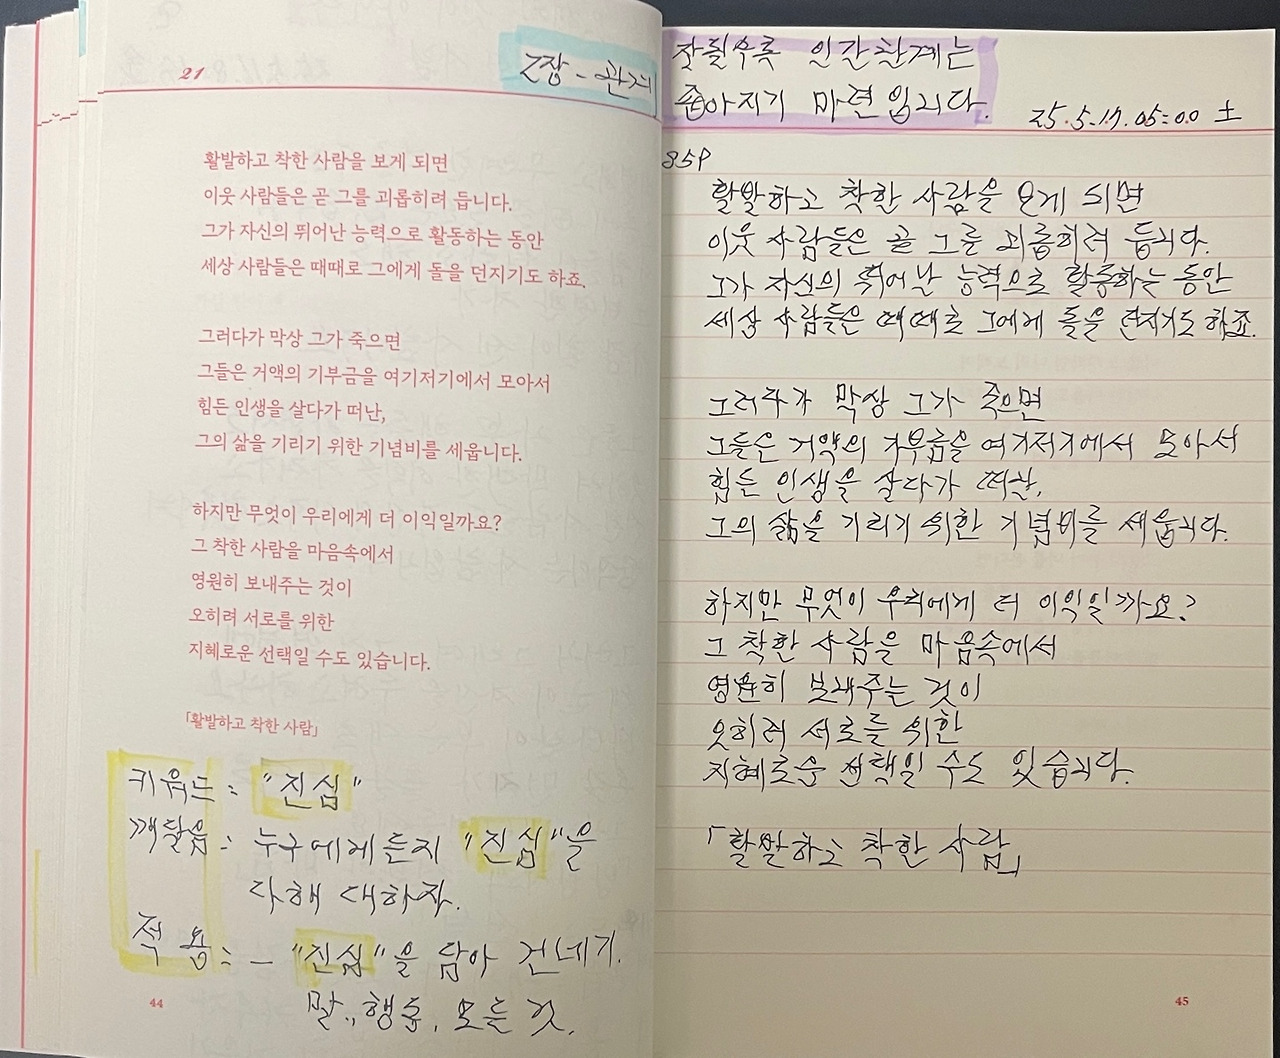 21
2장 - 관계
활발하고 착한 사람을 보게 되면
이웃 사람들은 곧 그를 괴롭히려 듭니다.
그가 자신의 뛰어난 능력으로 활동하는 동안
세상 사람들은 때때로 그에게 돌을 던지기도 하죠.
그러다가 막상 그가 죽으면
그들은 거액의 기부금을 여기저기에서 모아서
힘든 인생을 살다가 떠난,
그의 삶을 기리기 위한 기념비를 세웁니다.
하지만 무엇이 우리에게 더 이익일까요?
그 착한 사람을 마음속에서
영원히 보내주는 것이
오히려 서로를 위한
지혜로운 선택일 수도 있습니다.
「활발하고 착한 사람」
키워드 : "진심"
깨달음 : 누구에게든지 "진심"을
다해 대하자.
적용 : - "진심"을 담아 건네기.
말, 행동, 모든 것.
44
인간관계는
좋아지기 마련입니다.
25.5.17.05:00 土
85P
활발하고 착한 사람을 보게 되면
이웃 사람들은 곧 그를 괴롭히려 듭니다.
그가 자신의 뛰어난 능력으로 활동하는 동안
세상 사람들은 때때로 그에게 돌을 던지기도 하죠.
그러다가 막상 그가 죽으면
그들은 거액의 기부금을 여기저기에서 모아서
힘든 인생을 살다가 떠난,
그의 삶을 기리기 위한 기념비를 세웁니다.
하지만 무엇이 우리에게 더 이익일까요?
그 착한 사람을 마음속에서
영원히 보내주는 것이
오히려 서로를 위한
지혜로운 선택일 수도 있습니다.
「활발하고 착한 사람」
45